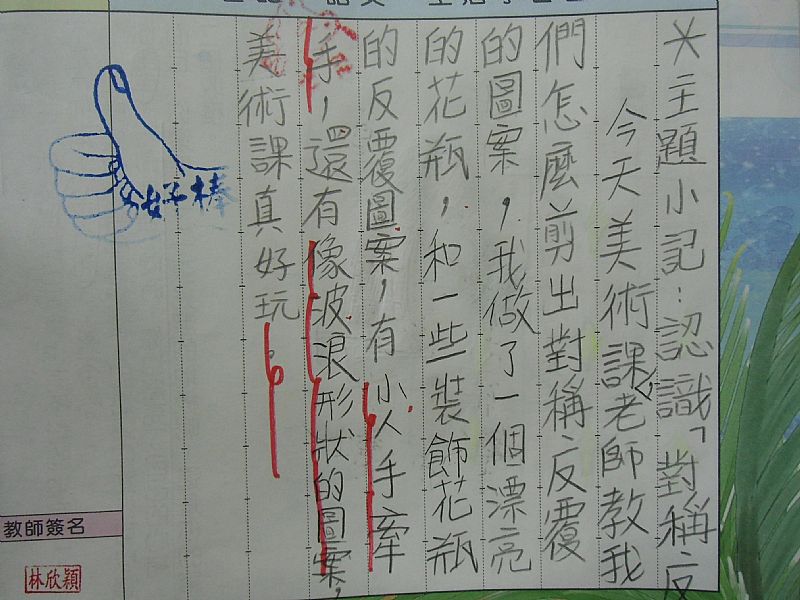 ☆主題小記：認識「對稱、反
今天美術課，老師教我
們怎麼剪出對稱、反覆
的圖案，我做了一個漂亮
的花瓶，和一些裝飾花瓶
的反覆圖案，有小人手牽
手，還有像波浪形狀的圖案，
美術課真好玩。
好棒
教師簽名
林欣穎